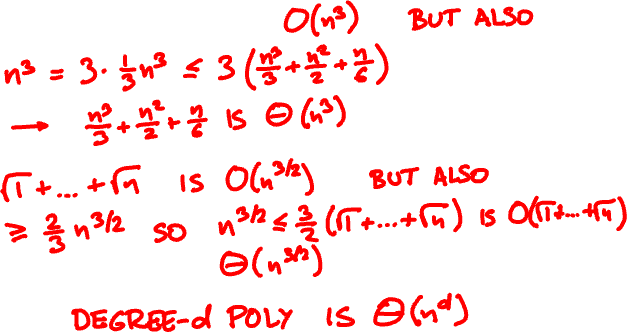 O(n³) BUT ALSO
n³ = 3 · 1/3 n³ ≤ 3 (n³/3 + n²/2 + n/6)
→ n³/3 + n²/2 + n/6 IS Θ(n³)
√1 + ... + √n IS O(n^{3/2}) BUT ALSO
≥ 2/3 n^{3/2} SO n^{3/2} ≤ 3/2 (√1 + ... + √n) IS O(√1 + ... + √n)
Θ(n^{3/2})
DEGREE-d POLY IS Θ(n^d)